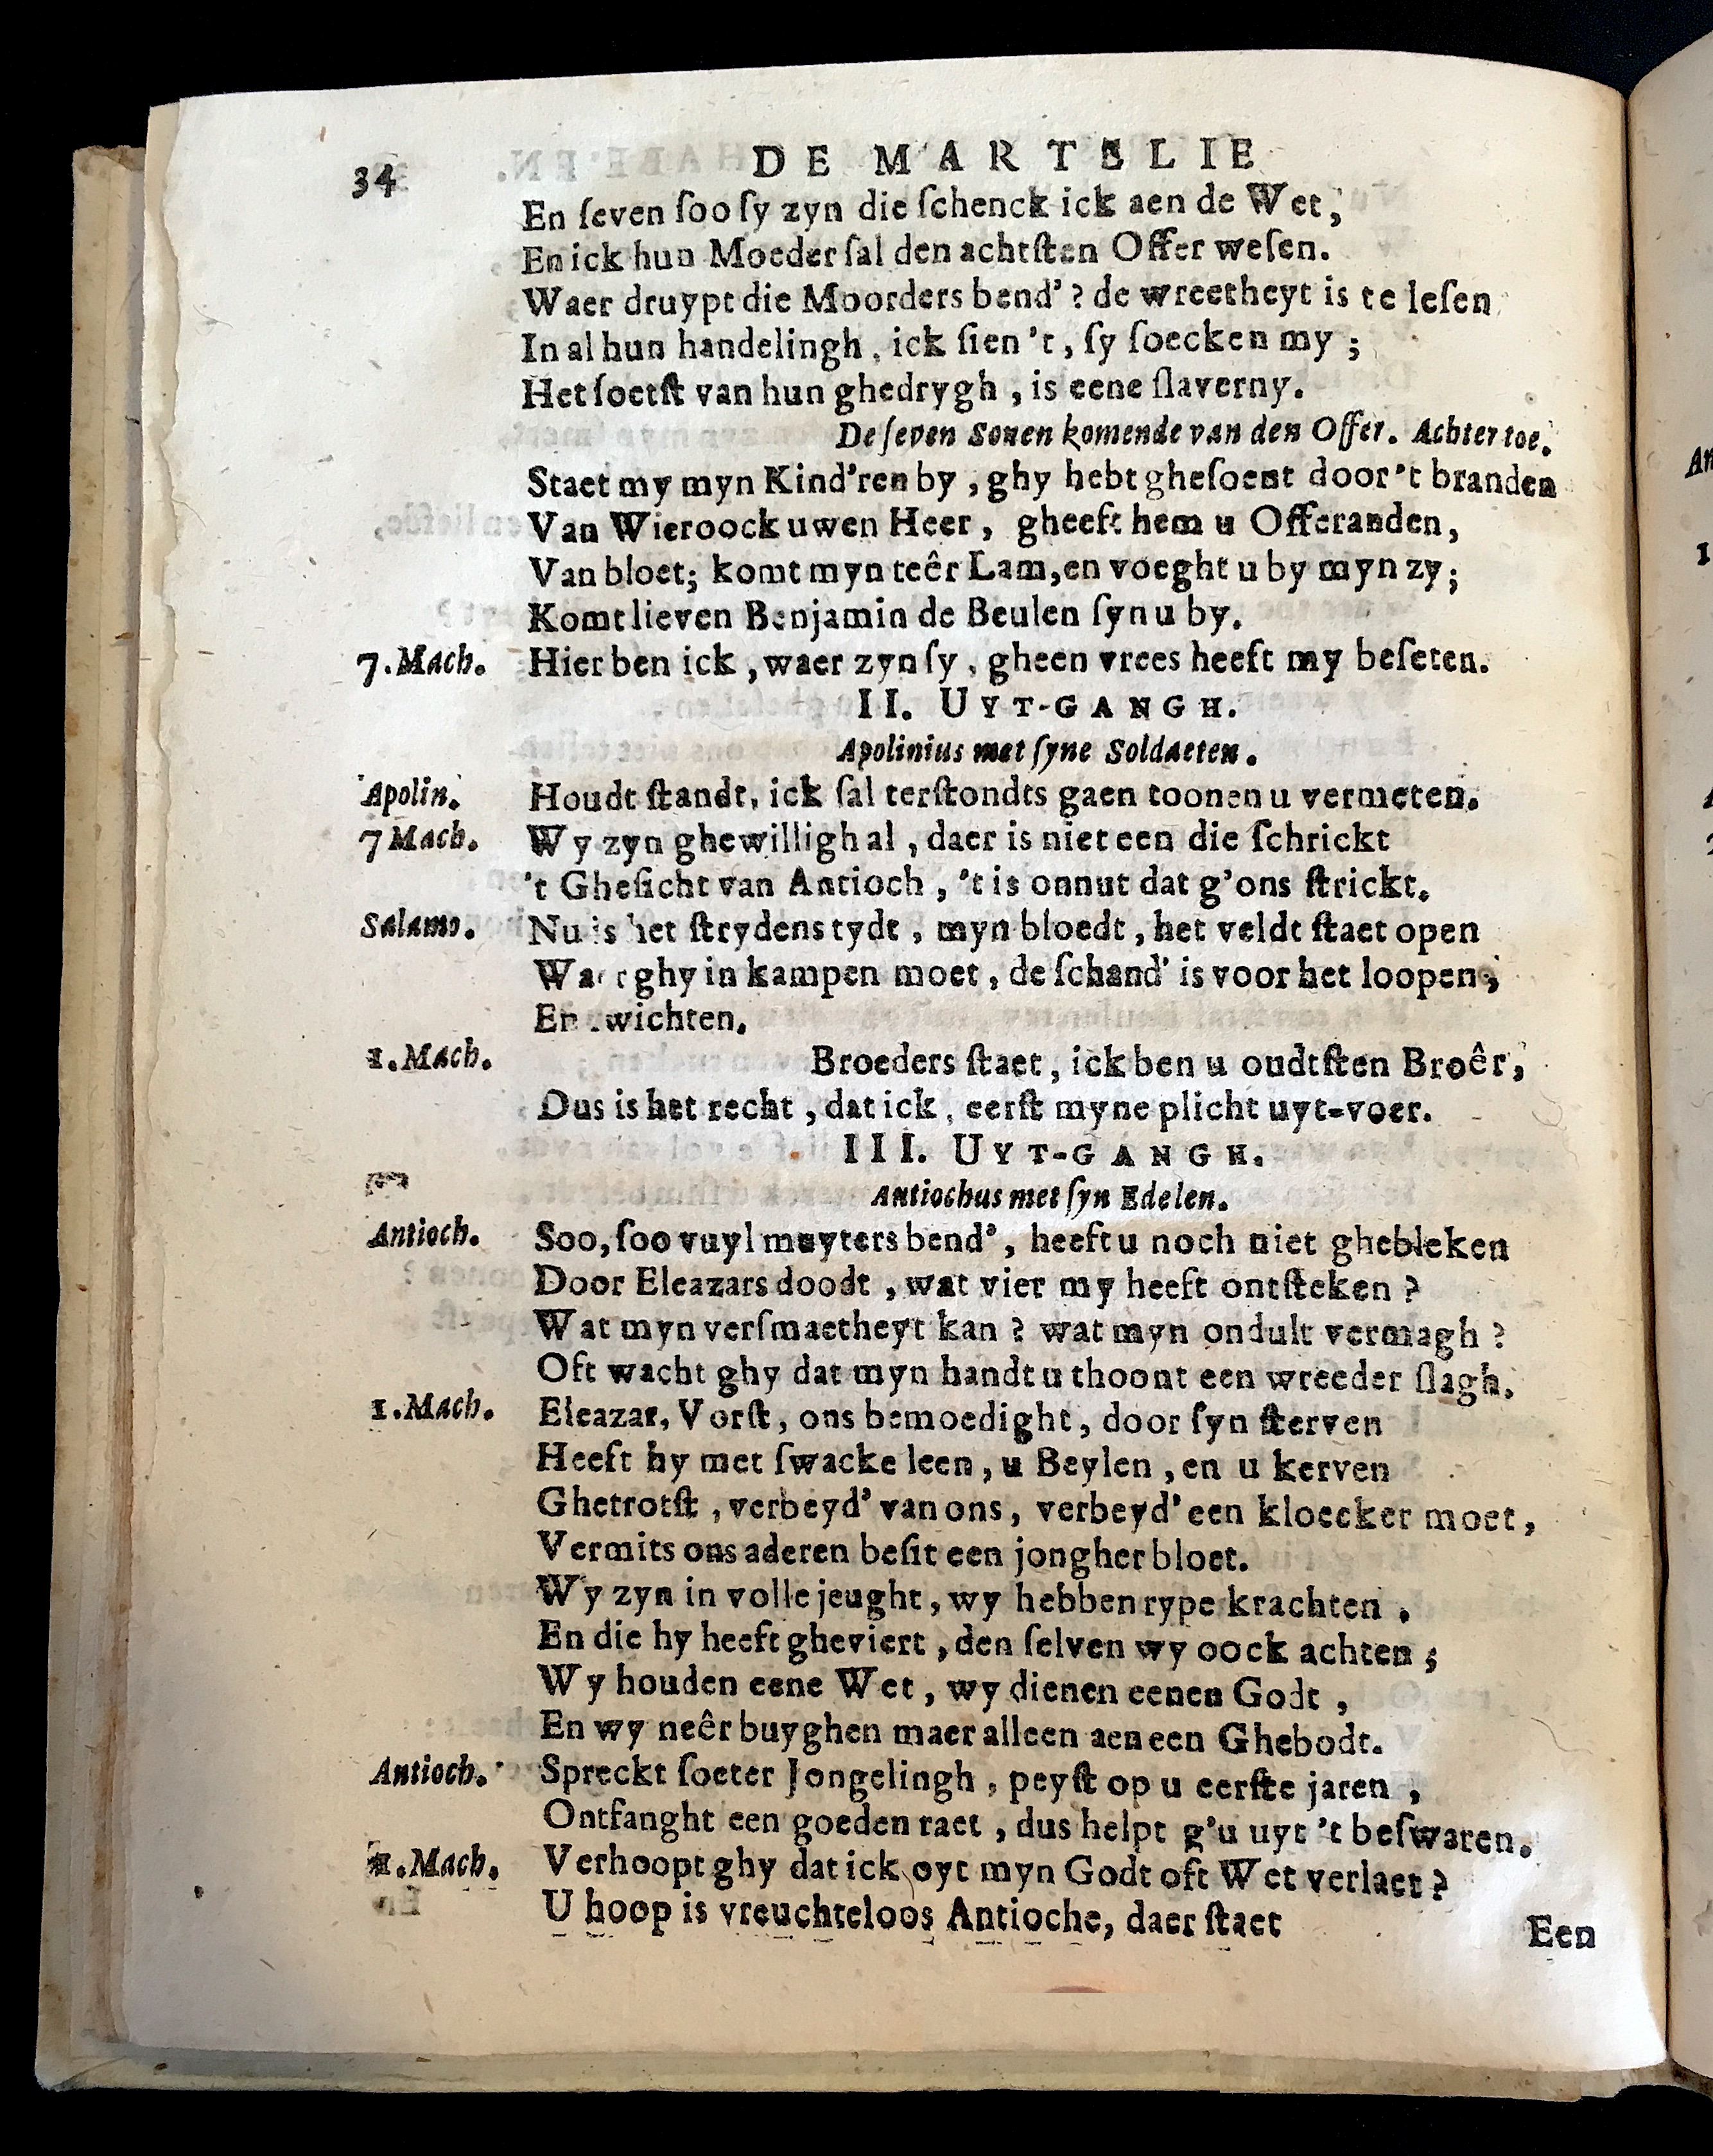 34 DE MARTELIE
En ſeven ſoo ſy zyn die ſchenck ick aen de Wet,
En ick hun Moeder ſal den achtſten Offer weſen.
Waer druypt die Moorders bend'? de wreetheyt is te leſen
In al hun handelingh, ick ſien 't, ſy ſoecken my;
Het ſoetſt van hun ghedrygh, is eene ſlaverny.
De ſeven Sonen komende van den Offer. Achter toe.
Staet my myn Kind'ren by, ghy hebt gheſoent door 't branden
Van Wieroock uwen Heer, gheeft hem u Offeranden,
Van bloet; komt myn teêr Lam, en voeght u by myn zy;
Komt lieven Benjamin de Beulen ſyn u by.
7. Mach. Hier ben ick, waer zyn ſy, gheen vrees heeft my beſeten.
II. UYT-GANGH.
Apolinius met ſyne Soldaeten.
Apolin. Houdt ſtandt, ick ſal terſtondts gaen toonen u vermeten.
7 Mach. Wy zyn ghewilligh al, daer is niet een die ſchrickt
't Gheſicht van Antioch, 't is onnut dat g'ons ſtrickt.
Salamo. Nu is het ſtrydens tydt, myn bloedt, het veldt ſtaet open
Waer ghy in kampen moet, de ſchand' is voor het loopen,
En wichten.
1. Mach. Broeders ſtaet, ick ben u oudtſten Broêr,
Dus is het recht, dat ick, eerſt myne plicht uyt-voer.
III. UYT-GANGH.
Antiochus met ſyn Edelen.
Antioch. Soo, ſoo vuyl muyters bend', heeft u noch niet ghebleken
Door Eleazars doodt, wat vier my heeft ontſteken?
Wat myn verſmaetheyt kan? wat myn ondult vermagh?
Oft wacht ghy dat myn handt u thoont een wreeder ſlagh.
1. Mach. Eleazar, Vorſt, ons bemoedight, door ſyn ſterven
Heeft hy met ſwacke leen, u Beylen, en u kerven
Ghetrotſt, verbeyd' van ons, verbeyd' een kloecker moet,
Vermits ons aderen beſit een jongher bloet.
Wy zyn in volle jeught, wy hebben rype krachten,
En die hy heeft gheviert, den ſelven wy oock achten;
Wy houden eene Wet, wy dienen eenen Godt,
En wy neêr buyghen maer alleen aen een Ghebodt.
Antioch. Spreckt ſoeter Jongelingh, peyſt op u eerſte jaren,
Ontfanght een goeden raet, dus helpt g'u uyt 't beſwaren.
1. Mach. Verhoopt ghy dat ick oyt myn Godt oft Wet verlaet?
U hoop is vreuchteloos Antioche, daer ſtaet
Een